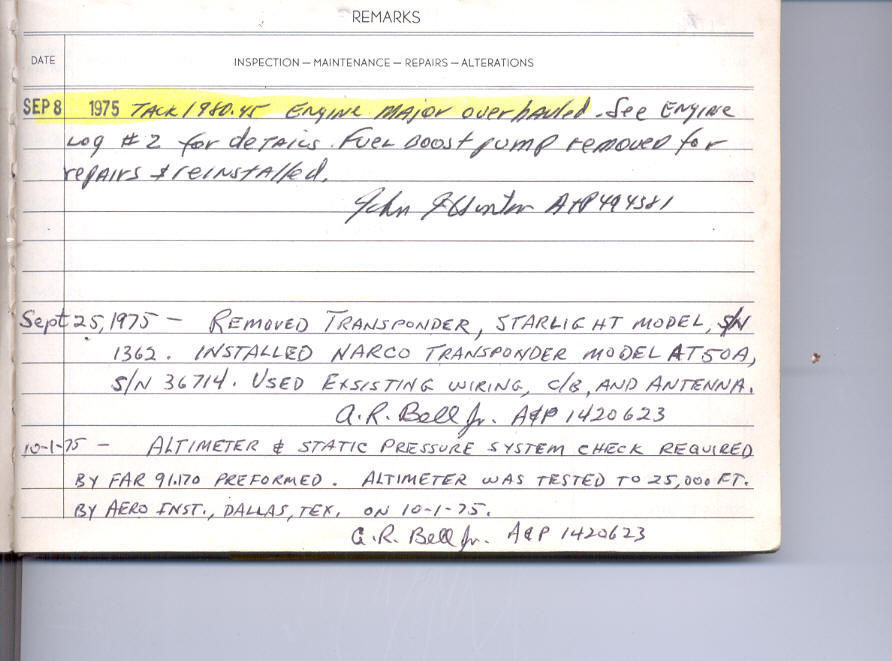 REMARKS
DATE INSPECTION — MAINTENANCE — REPAIRS — ALTERATIONS
SEP 8 1975 TACK 1980.45 ENGINE MAJOR overhauled. See ENGINE
Log #2 for details. Fuel Boost pump removed for
repairs & reinstalled.
John Hunter A&P 494381
Sept 25, 1975 – REMOVED TRANSPONDER, STARLIGHT MODEL, S/N
1362. INSTALLED NARCO TRANSPONDER MODEL AT50A,
S/N 36714. USED EXSISTING WIRING, C/B, AND ANTENNA.
A.R. Bell Jr. A&P 1420623
10-1-75 – ALTIMETER & STATIC PRESSURE SYSTEM CHECK REQUIRED
BY FAR 91.170 PREFORMED. ALTIMETER WAS TESTED TO 25,000 FT.
BY AERO INST., DALLAS, TEX. ON 10-1-75.
A.R. Bell Jr. A&P 1420623